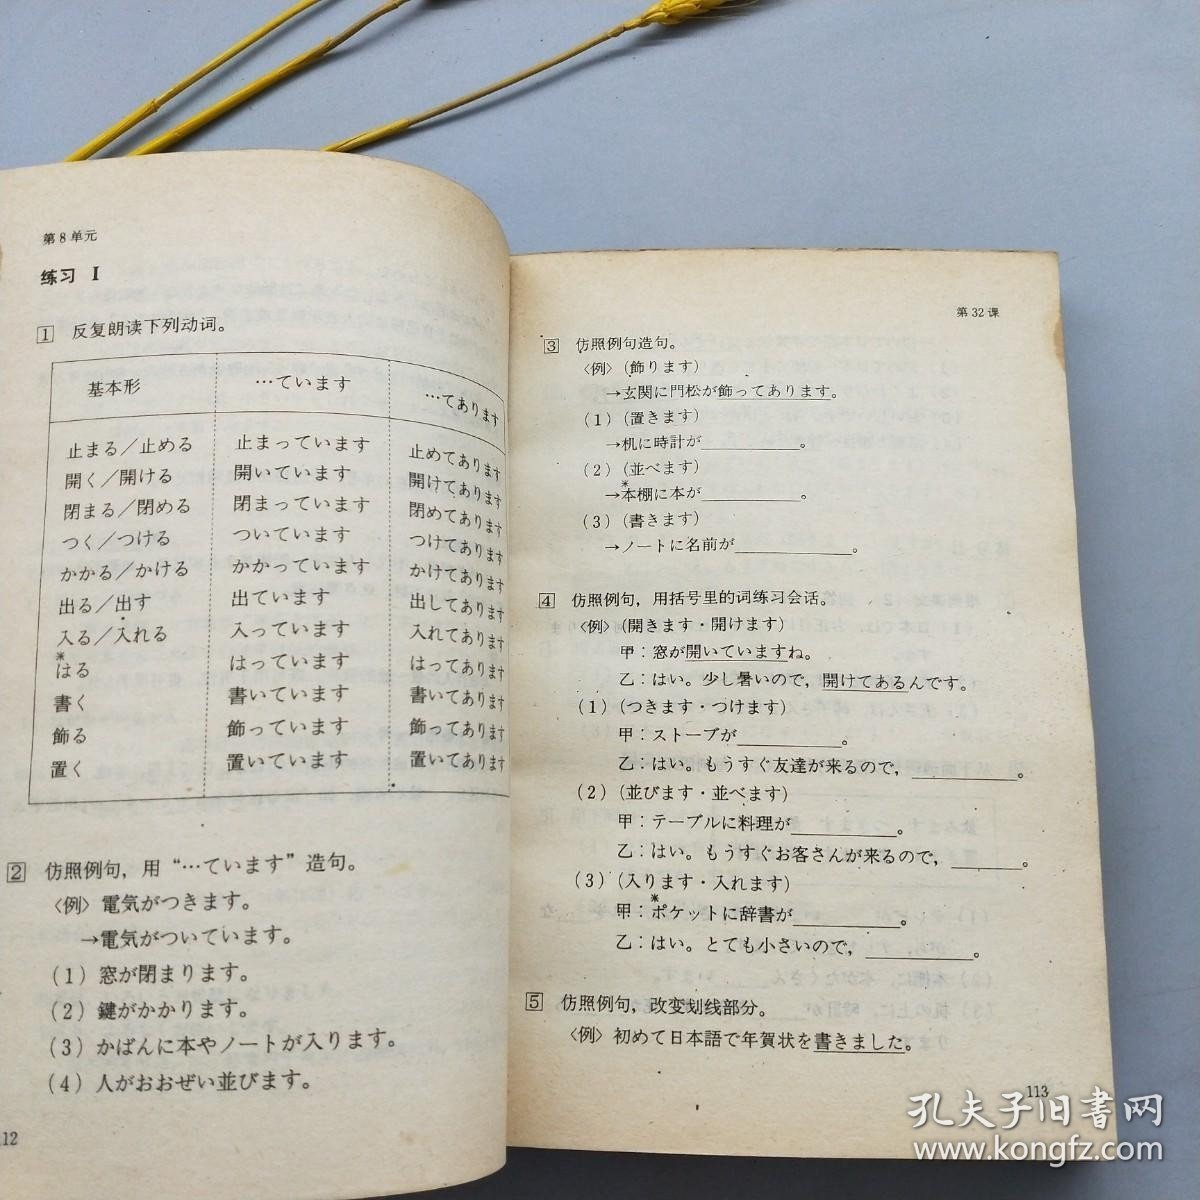 第8单元
练习 Ⅰ
1 反复朗读下列动词。
基本形 …ています …てあります
止まる／止める 止まっています 止めてあります
開く／開ける 開いています 開けてあります
閉まる／閉める 閉まっています 閉めてあります
つく／つける ついています つけてあります
かかる／かける かかっています かけてあります
出る／出す 出ています 出してあります
入る／入れる 入っています 入れてあります
*はる はっています はってあります
書く 書いています 書いてあります
飾る 飾っています 飾ってあります
置く 置いています 置いてあります
2 仿照例句，用“…ています”造句。
〈例〉電気がつきます。
→電気がついています。
（1）窓が閉まります。
（2）鍵がかかります。
（3）かばんに本やノートが入ります。
（4）人がおおぜい並びます。
12
第32课
3 仿照例句造句。
〈例〉（飾ります）
→玄関に門松が飾ってあります。
（1）（置きます）
→机に時計が＿＿＿＿＿。
（2）（並べます）
→*本棚に本が＿＿＿＿＿。
（3）（書きます）
→ノートに名前が＿＿＿＿＿。
4 仿照例句，用括号里的词练习会话。
〈例〉（開きます・開けます）
甲：窓が開いていますね。
乙：はい。少し暑いので，開けてあるんです。
（1）（つきます・つけます）
甲：ストーブが＿＿＿＿＿。
乙：はい。もうすぐ友達が来るので，＿＿＿＿＿。
（2）（並びます・並べます）
甲：テーブルに料理が＿＿＿＿＿。
乙：はい。もうすぐお客さんが来るので，＿＿＿＿。
（3）（入ります・入れます）
甲：*ポケットに辞書が＿＿＿＿＿。
乙：はい。とても小さいので，＿＿＿＿＿。
5 仿照例句，改变划线部分。
〈例〉初めて日本語で年賀状を書きました。
113
孔夫子旧书网
www.kongfz.com